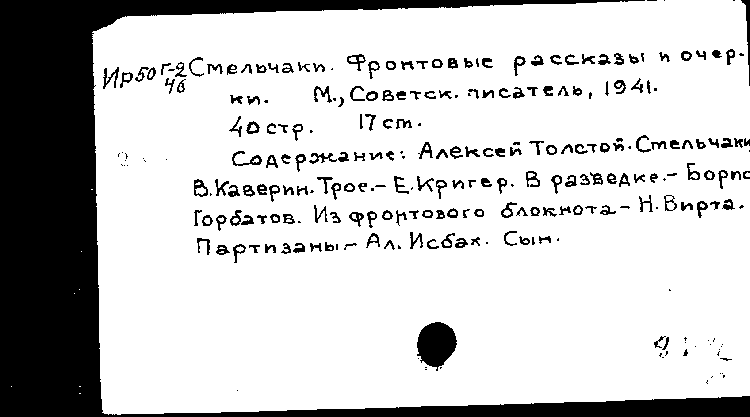 Ир50 Г-2 Смельчаки. Фронтовые рассказы и очер-
46
ки. М., Советск. писатель, 1941.
40 стр. 17 cm.
Содержание: Алексей Толстой. Смельчаки
В. Каверин. Трое. – Е. Кригер. В разведке. – Борис
Горбатов. Из фронтового блокнота – Н. Вирта.
Партизаны – Ал. Исбах. Сын.